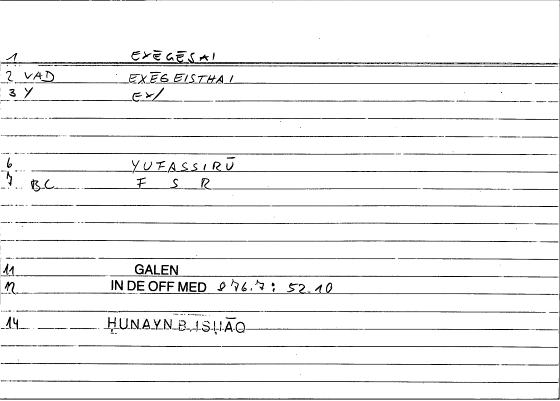 1 EXĒGĒSAI
2 VAD EXĒGEISTHAI
3 Y EX/
6 YUFASSIRŪ
7 BC F S R
11 GALEN
12 IN DE OFF MED 976.7: 52.10
14 ḤUNAYN B. ISḤĀQ